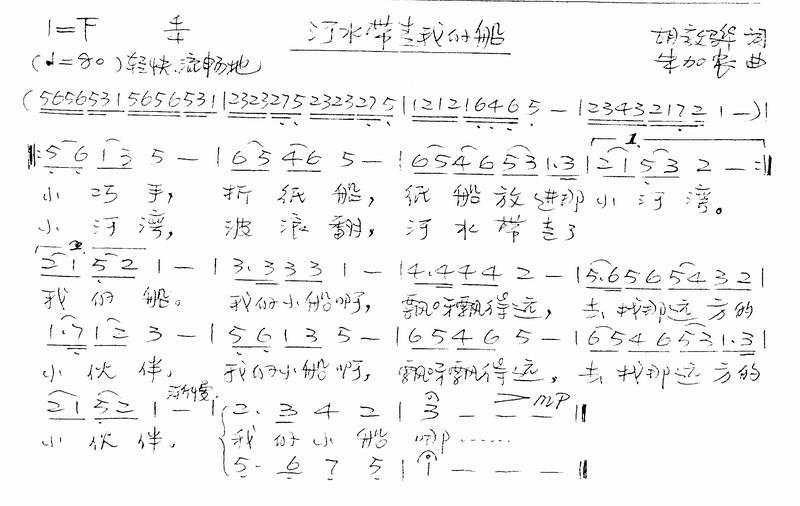 1=F 4/4 河水带走我的船 胡敦骅 词
(♩=80)轻快、流畅地 牛加农 曲
(56565 31 56565 31|2323275 2323275|12121646 5 -|23432172 1 -)|
‖:56 13 5 -|65 46 5 -|6546 531.3|21 53 2 -:‖
小 巧 手, 折 纸 船, 纸 船 放 进那 小 河 湾。
小 河 湾, 波 浪 翻, 河 水 带 走了
21 52 1 -|3.3 33 1 -|4.4 44 2 -|5.656 54 32|
我 的 船。 我的小船啊, 飘呀飘得远, 去 找那远 方的
1.7 12 3 -|56 13 5 -|65 46 5 -|6546 531.3|
小 伙 伴, 我的小船啊, 飘呀飘得远, 去 找那远 方的
21 52 1 -|2. 3 4 2|3 - - -‖
渐慢 mp
小 伙 伴。 我 的 小 船 哪······
5. 6 7 5|1 - - -‖